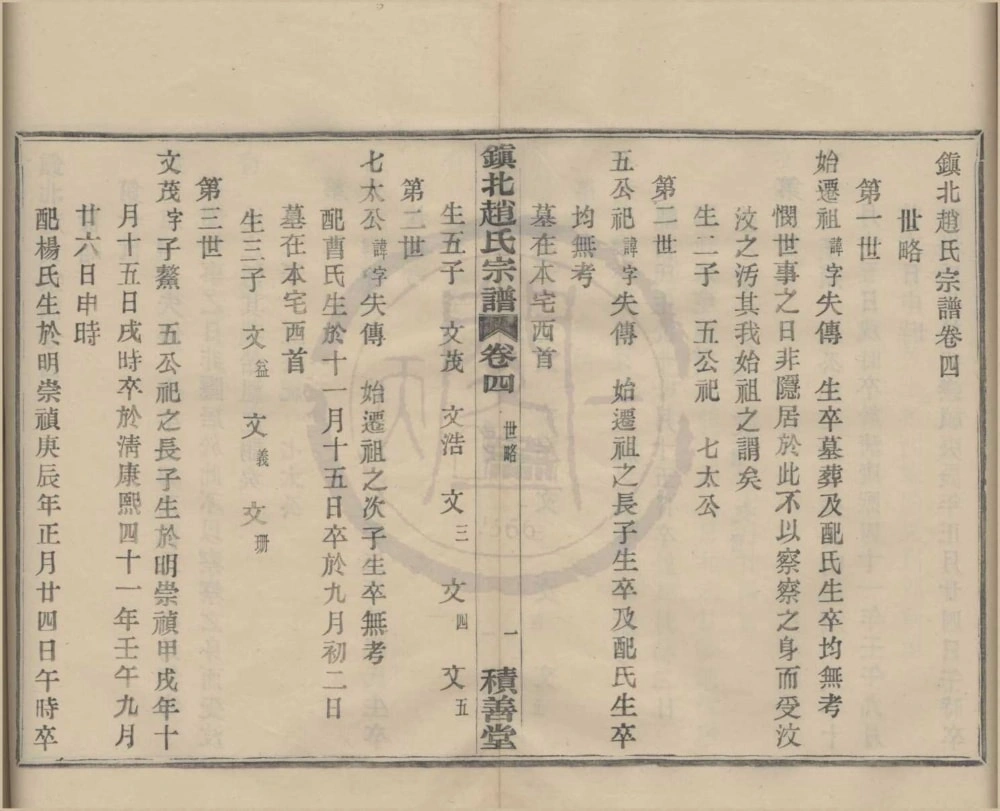 鎭北趙氏宗譜卷四
世略
第一世
始遷祖諱字失傳　生卒墓葬及配氏生卒均無考
憫世事之日非隱居於此不以察察之身而受汶
汶之汚其我始祖之謂矣
生二子　五公祀　七太公
第二世
五公祀諱字失傳　始遷祖之長子生卒及配氏生卒
均無考
墓在本宅西首
鎭北趙氏宗譜　卷四　世略　一　積善堂
生五子　文茂　文浩　文三　文四　文五
第二世
七太公諱字失傳　始遷祖之次子生卒無考
配曹氏生於十一月十五日卒於九月初二日
墓在本宅西首
生三子　文益　文義　文珊
第三世
文茂字子鰲　五公祀之長子生於明崇禎甲戌年十
月十五日戌時卒於淸康熙四十一年壬午九月
廿六日申時
配楊氏生於明崇禎庚辰年正月廿四日午時卒